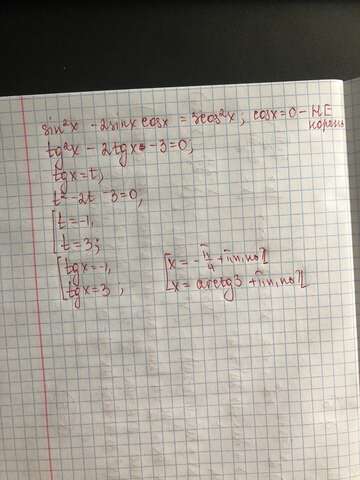 sin²x - 2sinx cosx = 3cos²x, cosx=0 - НЕ корень
tg²x - 2tgx - 3=0;
tgx=t;
t² - 2t - 3=0;
[t=-1,
[t=3;
[tgx=-1, [x=-π/4+πn, n∈Z
[tgx=3; [x=arctg3+πn, n∈Z